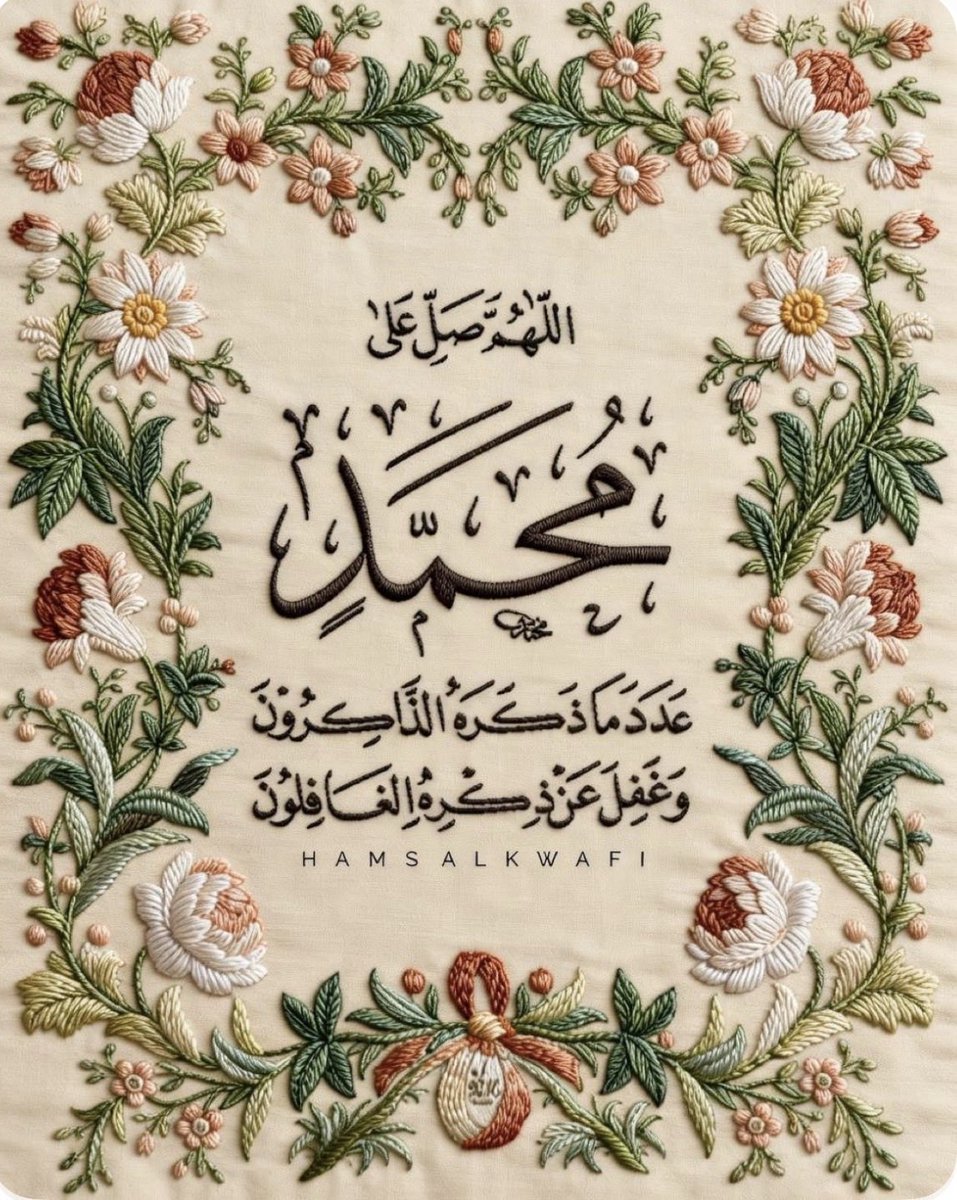 اللّٰهُمَّ صَلِّ عَلىٰ
مُحَمَّدٍ
عَدَدَ مَا ذَكَرَهُ الذَّاكِرُوْنَ
وَغَفِلَ عَنْ ذِكْرِهِ الغَافِلُوْنَ
HAMSALKWAFI